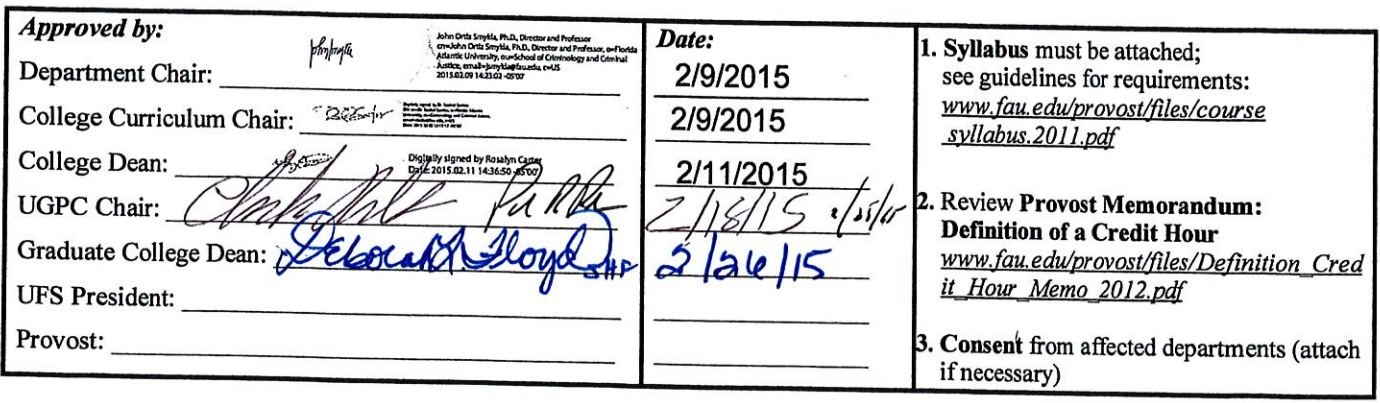 Approved by:
Department Chair:
John Ortiz Smykla, Ph.D., Director and Professor
cn=John Ortiz Smykla, Ph.D., Director and Professor, o=Florida
Atlantic University, ou=School of Criminology and Criminal
Justice, email=jsmykla@fau.edu, c=US
2015.02.09 14:23:02 -05'00'
College Curriculum Chair:
College Dean:
Digitally signed by Rosalyn Carter
Date: 2015.02.11 14:36:50 -05'00'
UGPC Chair:
Graduate College Dean: Deborah L. Floyd
UFS President:
Provost:
Date:
2/9/2015
2/9/2015
2/11/2015
2/18/15
2/26/15
1. Syllabus must be attached;
see guidelines for requirements:
www.fau.edu/provost/files/course
_syllabus.2011.pdf
2. Review Provost Memorandum:
Definition of a Credit Hour
www.fau.edu/provost/files/Definition_Cred
it_Hour_Memo_2012.pdf
3. Consent from affected departments (attach
if necessary)